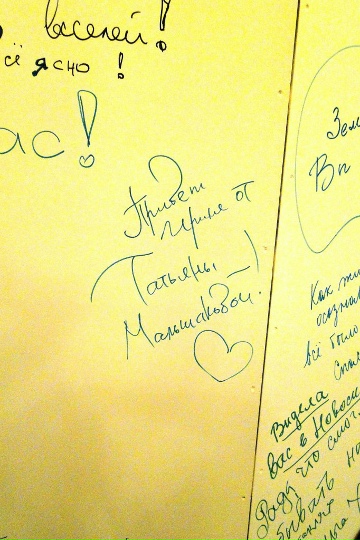 вселей!
всё ясно!
ас!
Привет
Ирине от
Татьяны
Малышаковой!
Зем
Вп
Как жи
осознав
всё было
Видела
вас в Новоси
Рада что смог
бывать на